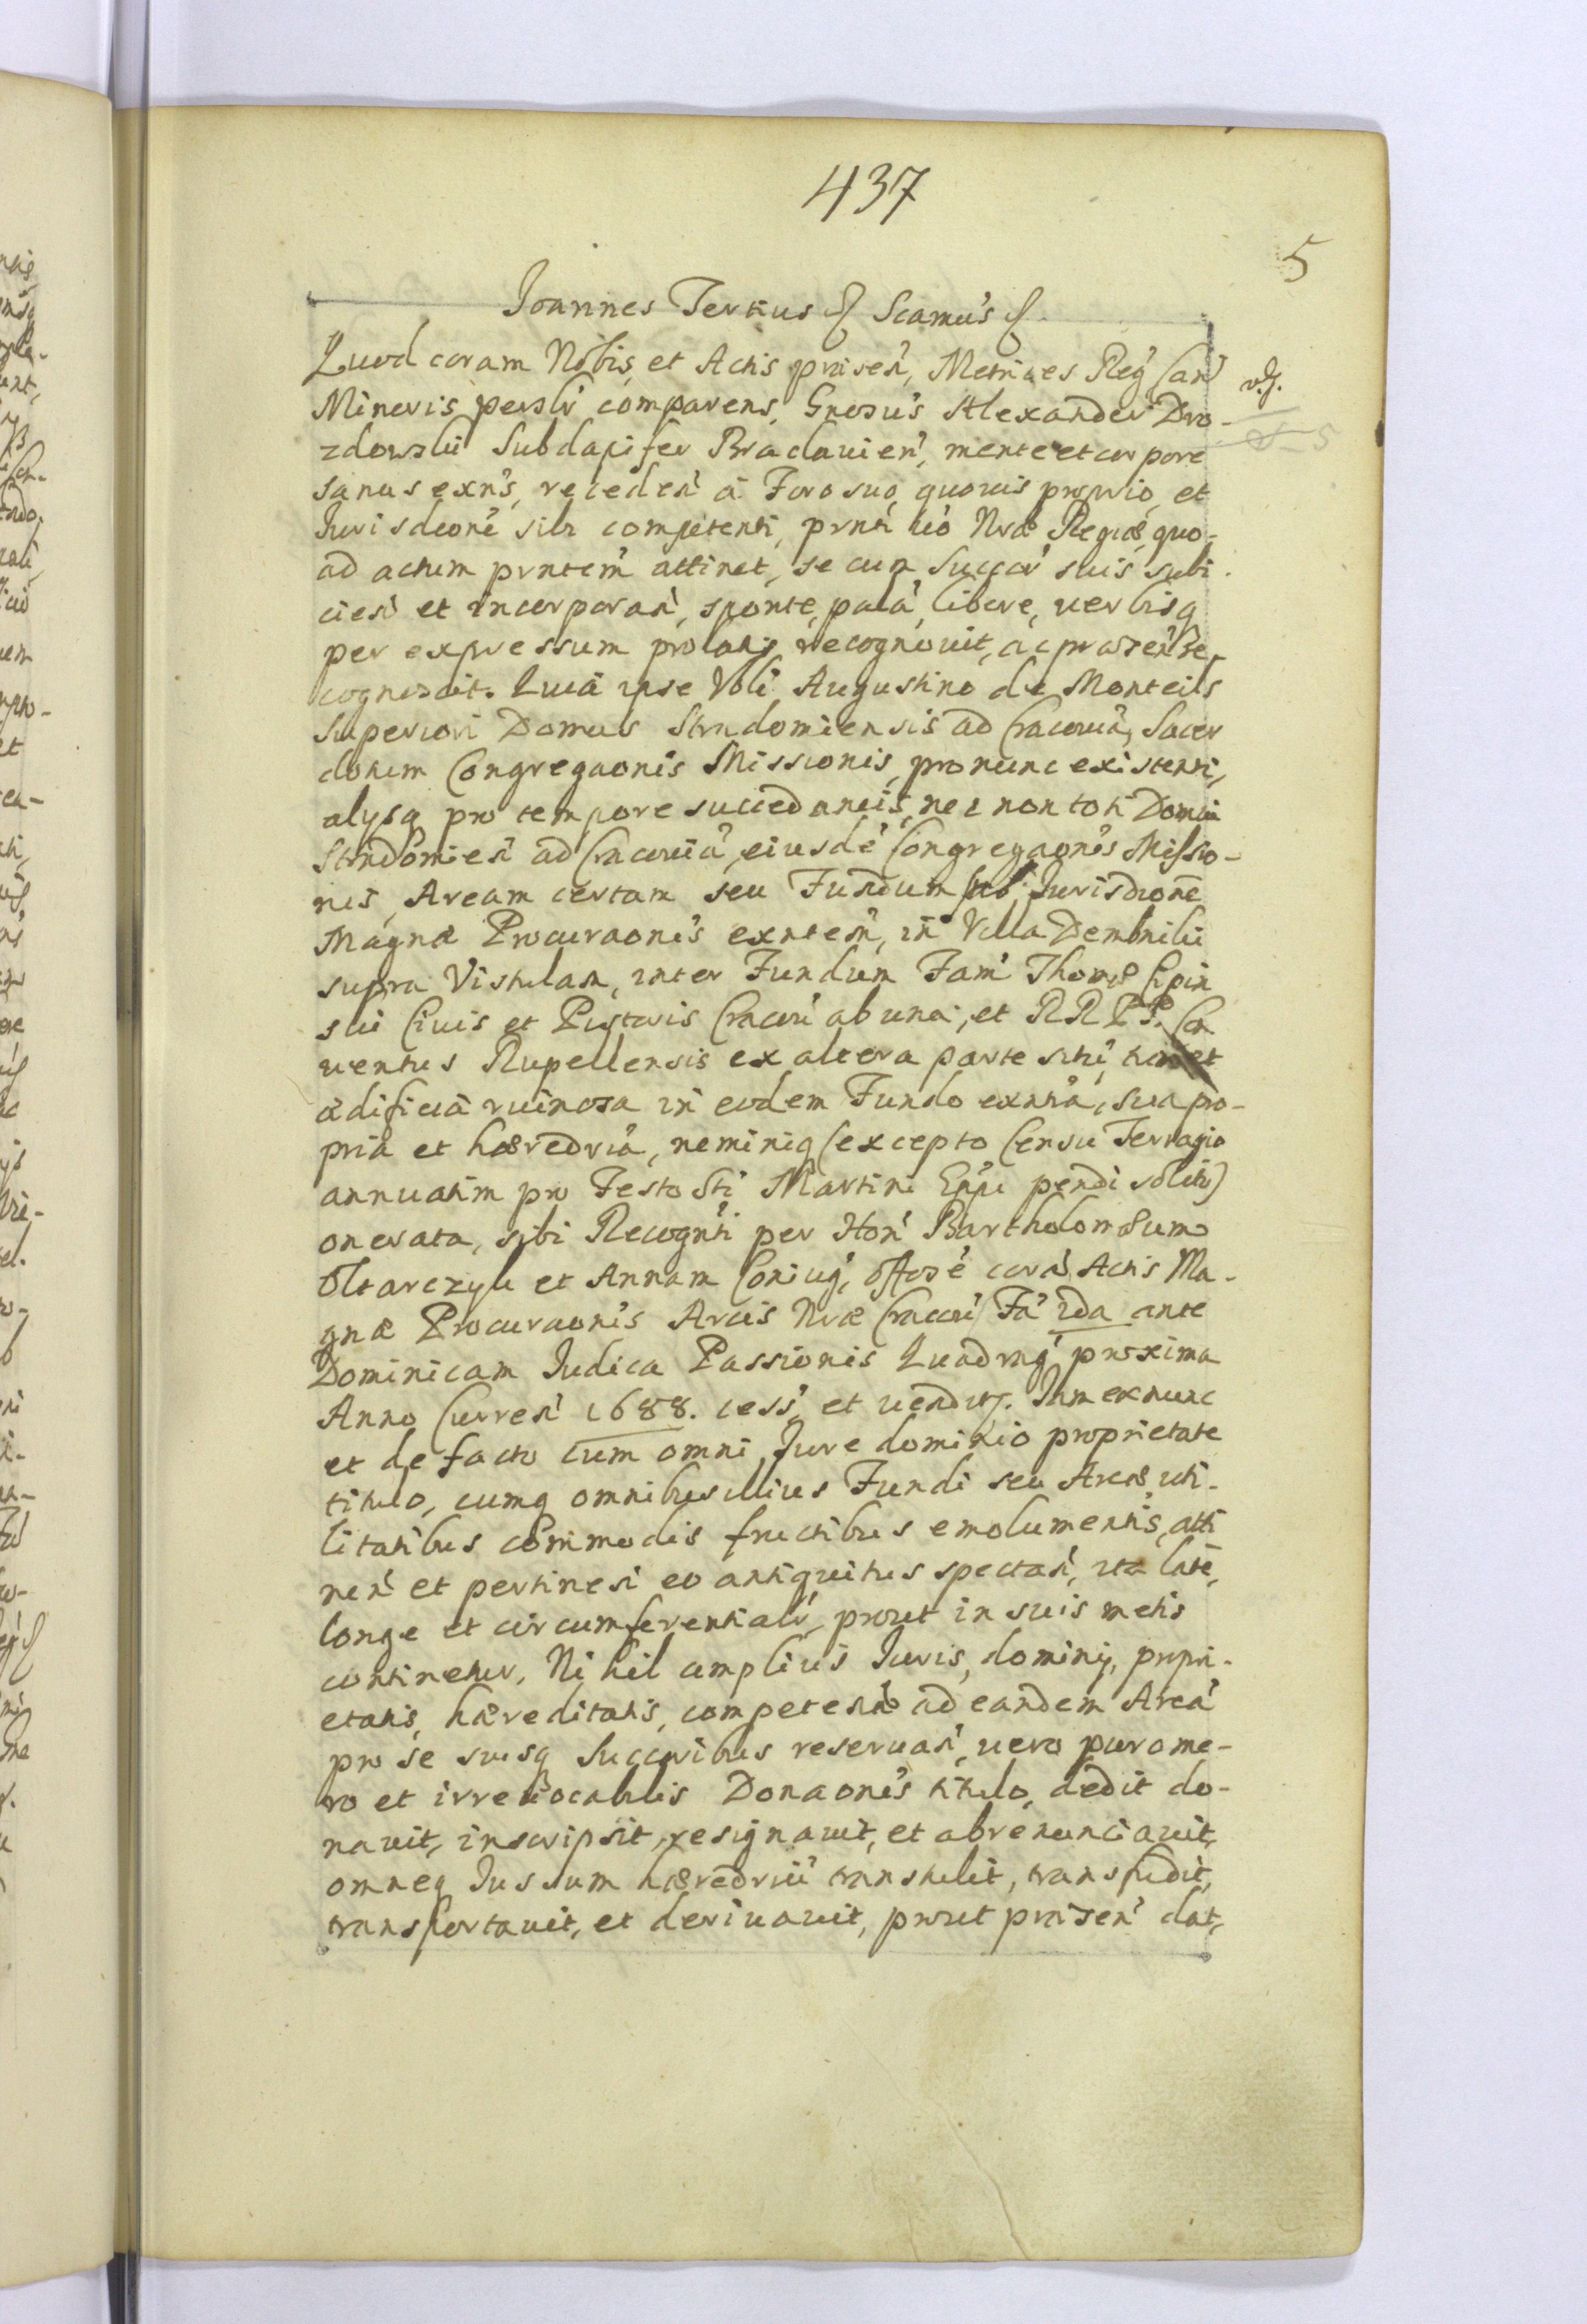 437
5
Joannes Tertius Scamus
Quod coram Nobis, et Actis praesen, Metrices Reg Can
Minoris persolr comparens, Gnosus Alexander Dro-
zdowski Subdapifer Braclauien, mente et corpore
sanus exns, receden a Foro suo, quouis proprio, et
Jurisdcone sibi competenti, prnti uo Nrae Regiae, quo-
ad actum prntem attinet, se cum Succor suis subi-
cien et incorporan, sponte, pala, libere, uerbisq
per expressum prolatis recognouit, ac praesen Re-
cognoscit. Quia ipse Vbli Augustino de Monteils
Superiori Domus Stradomiensis ad Cracouia, Sacer
dotum Congregaonis Missionis, pro nunc existenti,
alysq pro tempore succedaneis, nec non toti Domui
Stradomien ad Cracouia, eiusde Congregaonis Missio-
nis, Aream certam seu Fundum sub Jurisdione
Magnae Procuraonis exntem, in Villa Dembniki
supra Vistulam, inter Fundum Fam Thomae
ski Ciuis et Pistoris Cracou ab una, et RRPP. Con
uentus Rupellensis ex altera parte siti,
aedificia ruinosa in eodem Fundo exntia, sua pro-
pria et haeredria, neminiq (excepto Censu Terragio
annuatim pro Festo Sti Martini Eppi pendi solito)
onerata, sibi Recognti per Hon Bartholomaeum
Oltarczyk et Annam Coniug, offose cora Actis Ma-
gnae Procuraonis Arcis Nrae Cracou Fa 2da ante
Dominicam Judica Passionis Quadrag proxima
Anno Curren 1688. cess, et uendit. Jam ex nunc
et de facto cum omni Jure dominio proprietate
titulo, cumq omnibus illius Fundi seu Areae uti-
litatibus commodis fructibus emolumentis, atti
nen et pertinen eo antiquitus spectan, ita late,
longe et circumferentialr, prout in suis metis
continetur. Nihil amplius Juris, dominij, propri-
etatis, haereditatis, competen ad eandem Area
pro se suisq Succoribus reseruan, uero puro me-
ro et irreuocabilis Donaonis titulo, dedit do-
nauit, inscripsit, resignauit, et abrenunciauit,
omneq Jus suum haeredriu transtulit, transfudit,
transportauit, et deriuauit, prout praesen dat,